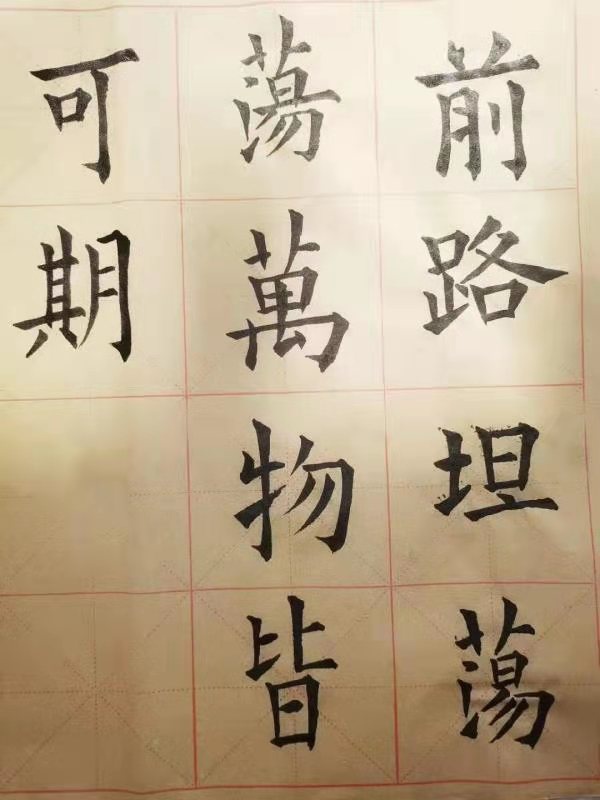 前路坦蕩
蕩萬物皆
可期